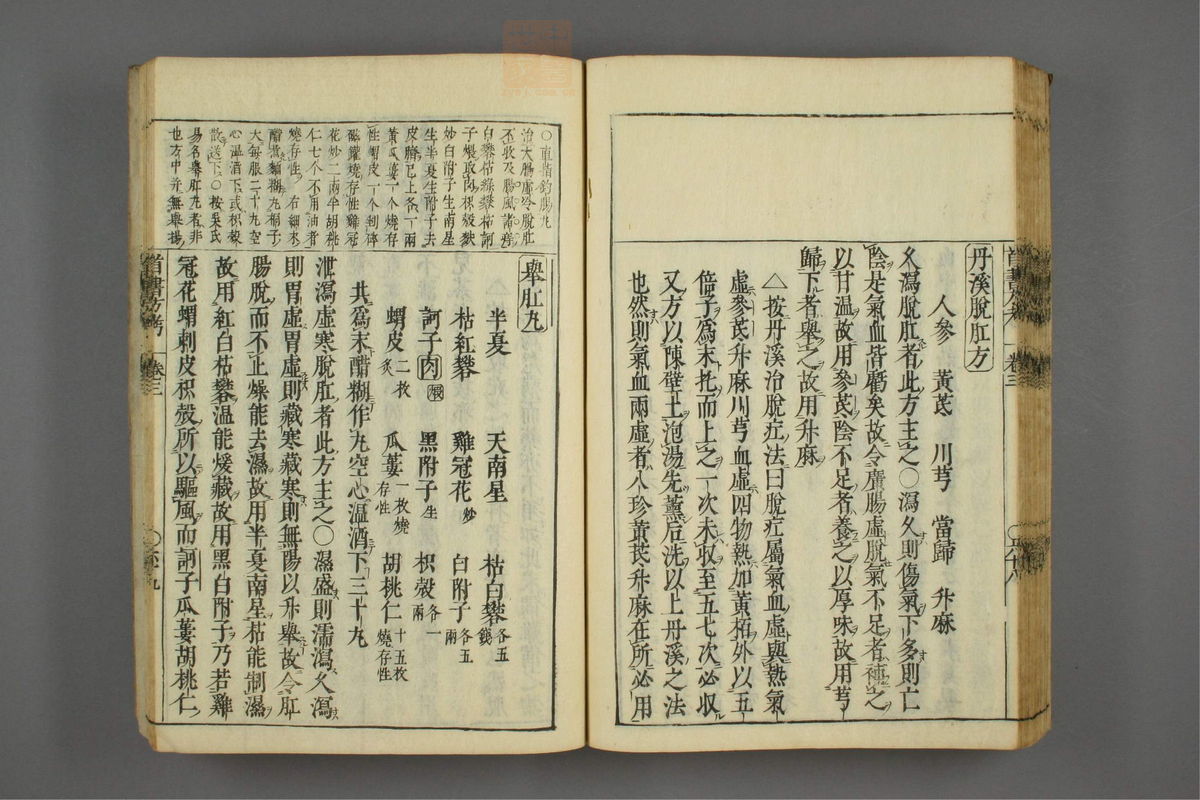 丹溪脫肛方
人參　黃芪　川芎　當歸　升麻
久瀉脫肛者此方主之○瀉久則傷氣下多則亡
陰是氣血皆虧矣故令廣腸虛脫氣不足者補之
以甘温故用參芪陰不足者養之以厚味故用芎
歸下者舉之故用升麻
△按丹溪治脫疘法曰脫疘屬氣血虛與熱氣
虛參芪升麻川芎血虛四物熱加黃栢外以五
倍子為末托而上之一次未收至五七次必收
又方以陳壁土泡湯先薰后洗以上丹溪之法
也然則氣血兩虛者八珍黃芪升麻在所必用
卷三
○直指釣腸丸
治大腸虛冷脫肛
不收及腸風諸痔
白礬枯綠礬枯訶
子煨取肉枳殼麩
炒白附子生南星
生半夏生附子去
皮臍已上各一兩
黃瓜蔞一个燒存
性蝟皮一个剉碎
磁鑵燒存性雞冠
花炒二兩半胡桃
仁七个不用油者
燒存性　右細末
醋煮麵糊丸梧子
大每服二十丸空
心温酒下或枳殼
散送下○按吳氏
易名舉肛丸者非
也方中并無舉揚
舉肛丸
半夏　天南星　枯白礬各五錢
枯紅礬　雞冠花炒　白附子各五兩
訶子肉煨　黑附子生　枳殼各一兩
蝟皮二枚炙　瓜蔞一枚燒存性　胡桃仁十五枚燒存性
共為末醋糊作丸空心温酒下三十丸
泄瀉虛寒脫肛者此方主之○濕盛則濡瀉久瀉
則胃虛胃虛則藏寒藏寒則無陽以升舉故令肛
腸脫而不止燥能去濕故用半夏南星枯能制濕
故用紅白枯礬温能煖藏故用黑白附子乃若雞
冠花蝟刺皮枳殼所以驅風而訶子瓜蔞胡桃仁
首書方考　卷三